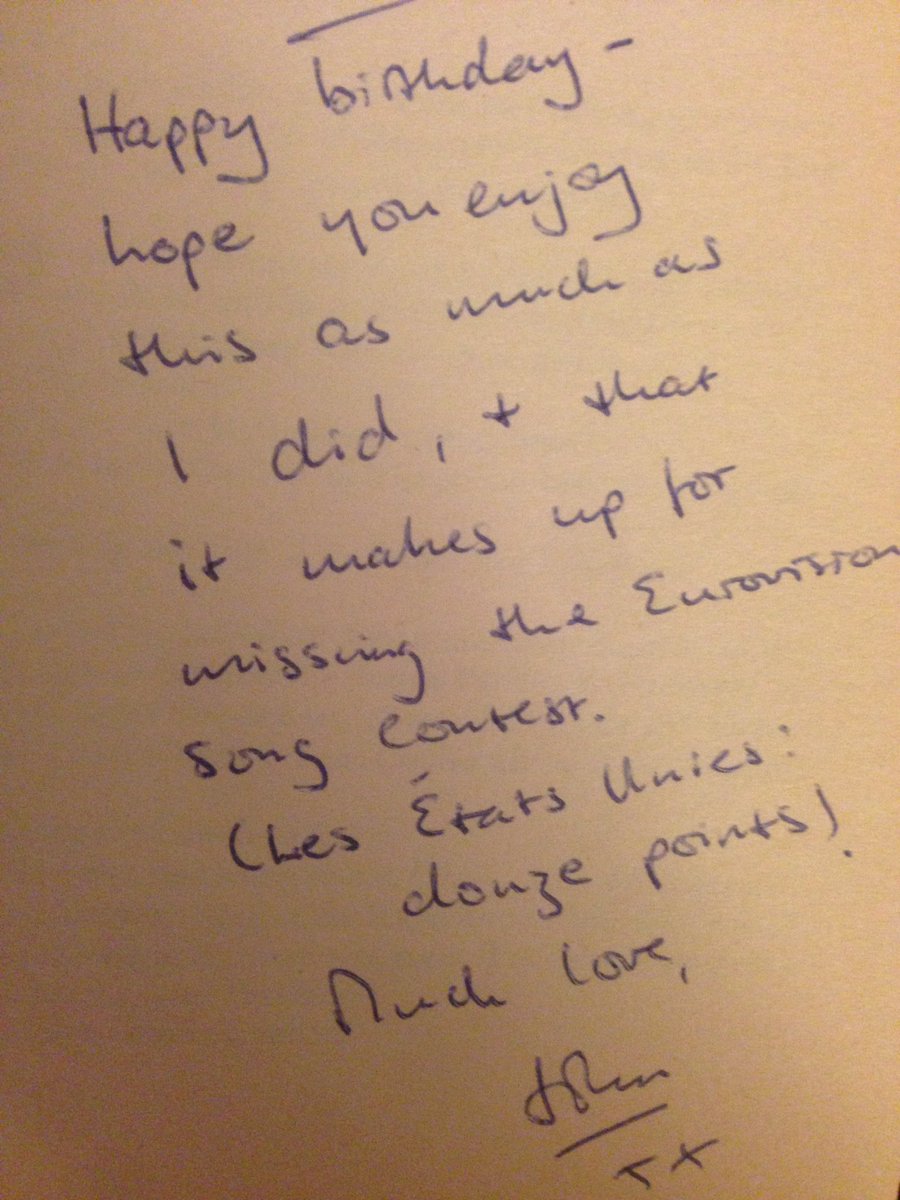 Happy birthday -
hope you enjoy
this as much as
I did, + that
it makes up for
missing the Eurovision
Song Contest.
(Les États Unies:
douze points).
Much love,
John
xx